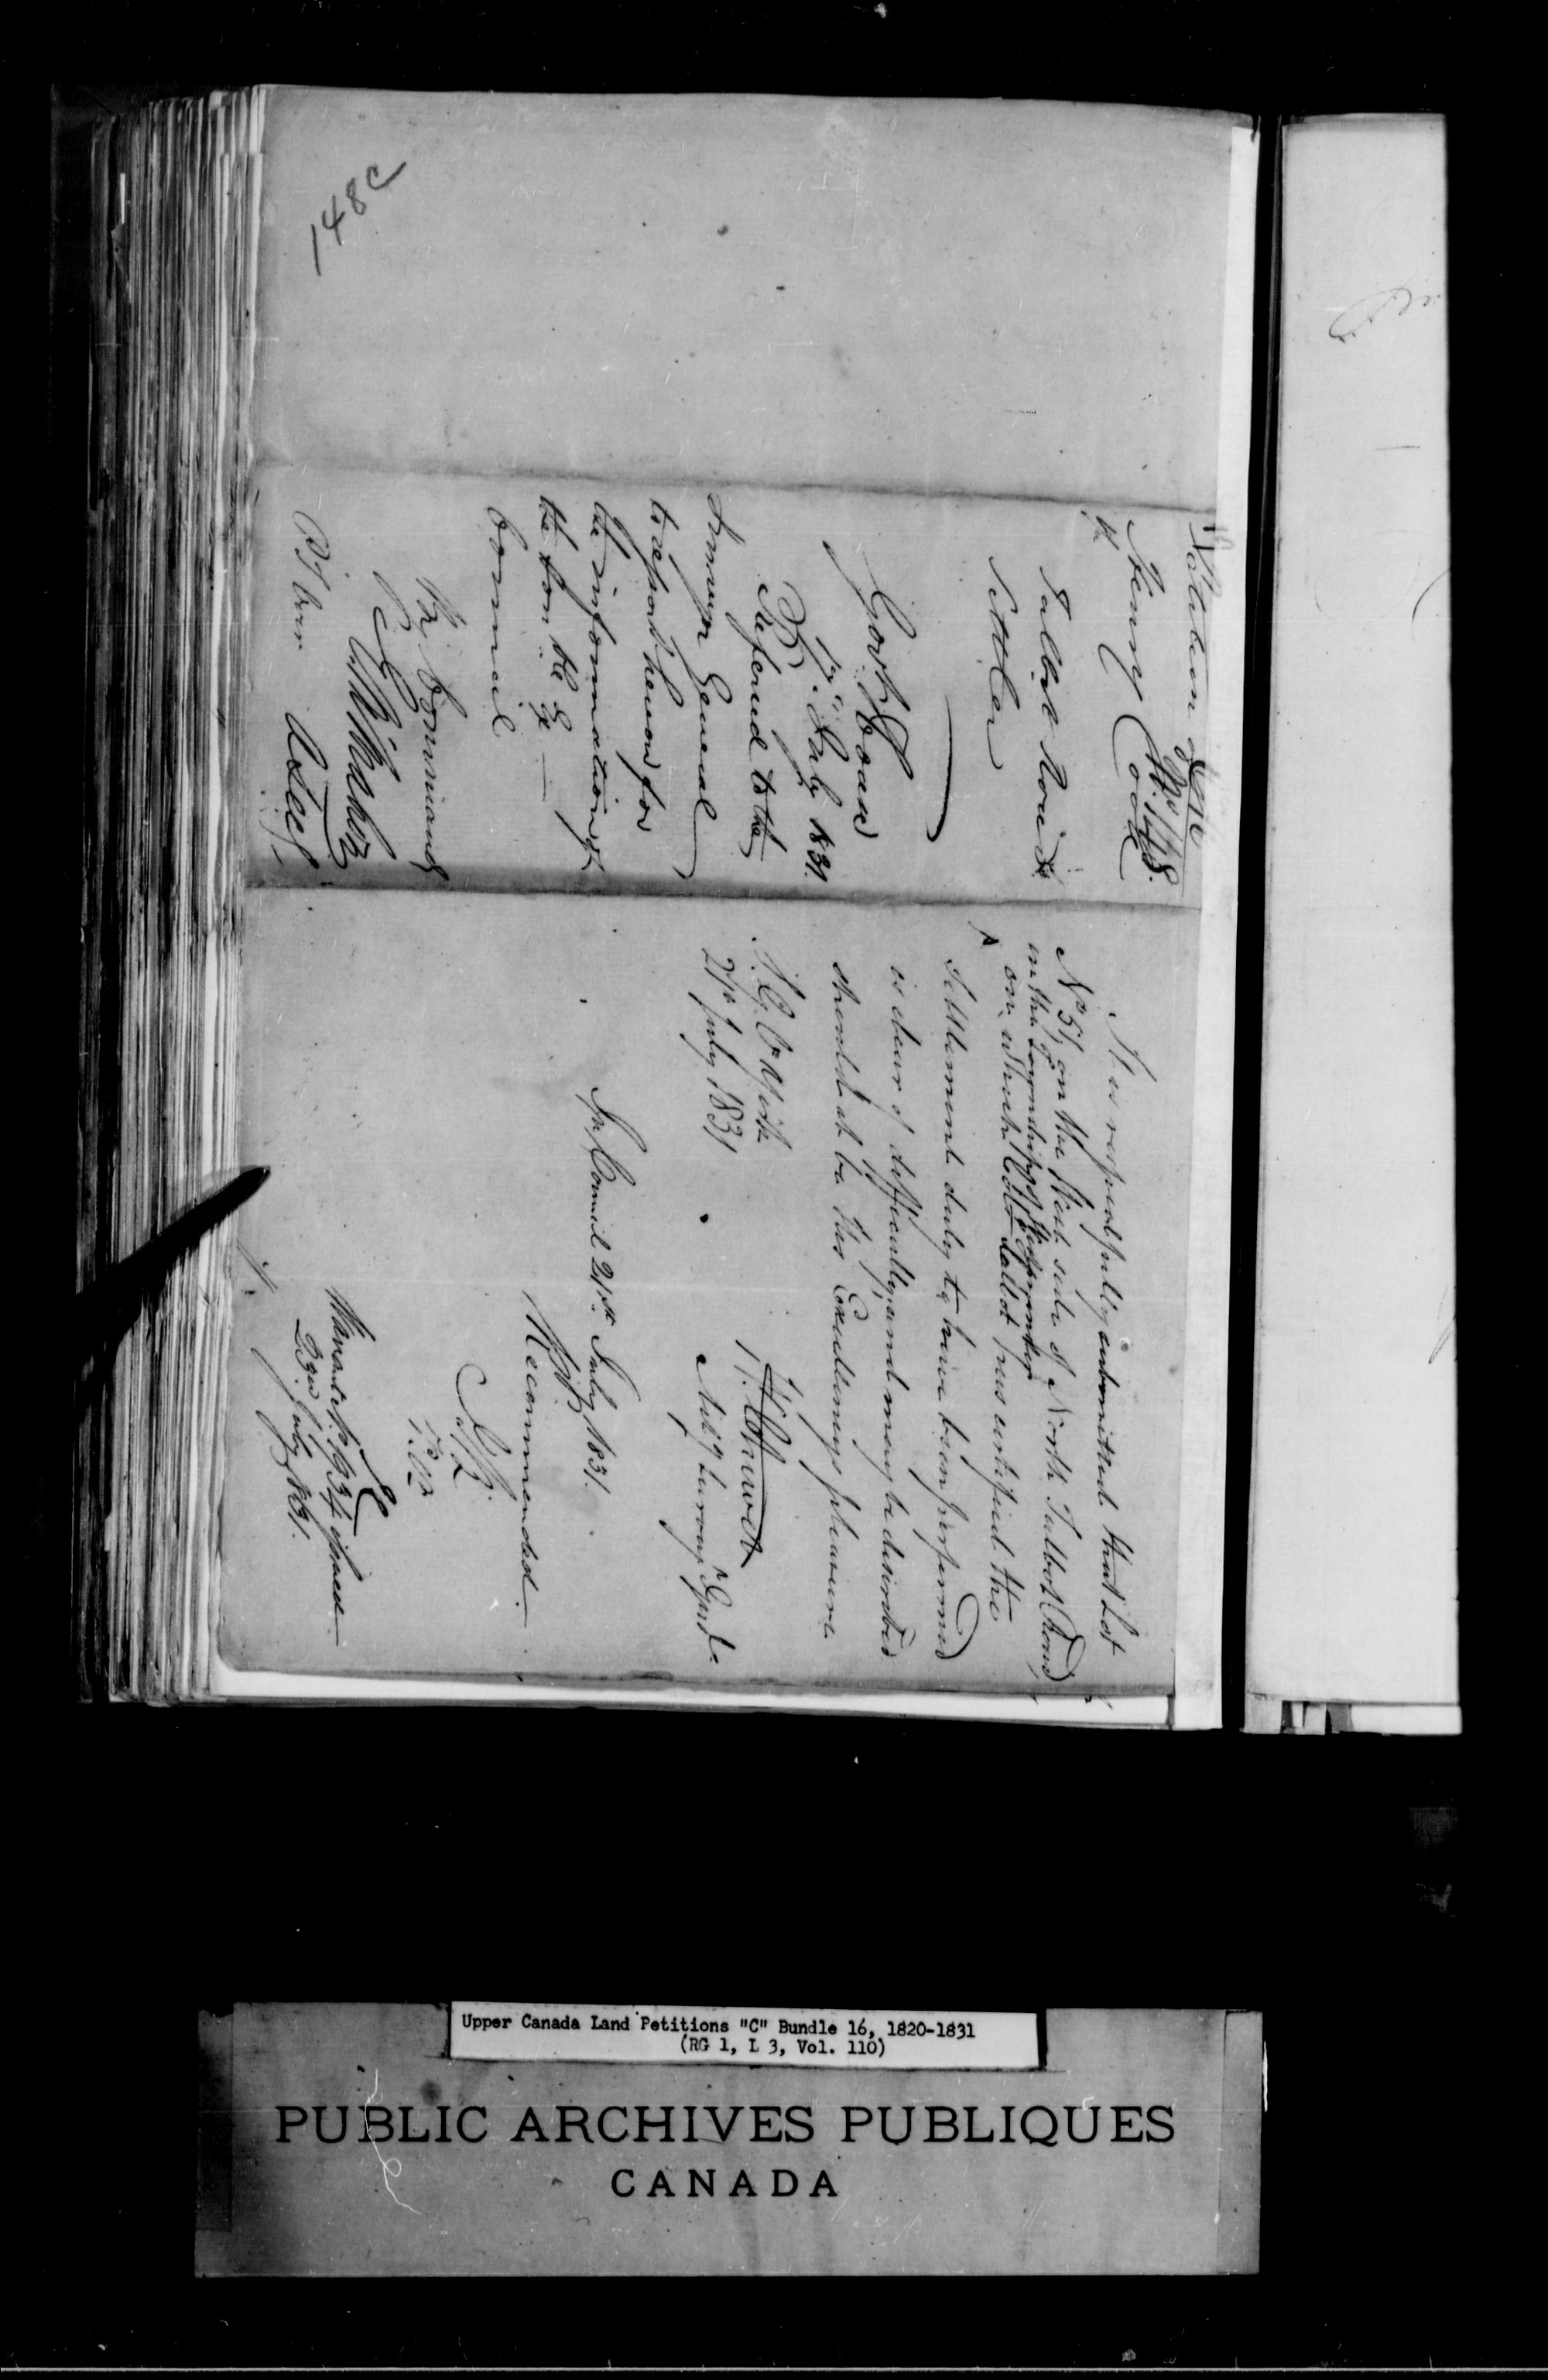 148c
No 148.
Petition of
Henry Cook
Talbot Road
Settler
Govt House
19th July 1831.
Referred to the
Surveyor General
to report hereon for
the information of
the Hon'ble Ex
Council
By Command
Z Mudge
It is respectfully submitted that Lot
No 51, on the West side of North Talbot Road,
in the Township of
on which Col. Talbot has certified the
Settlement duty to have been performed
is clear of difficulty, and may be described
should it be His Excellency's pleasure
S.G.O. York
21st July 1831
T. Chewett
Act'g Survey'r Gen'l
In Council 21st July 1831.
Recommended.
Warrant No 1934 issued
23rd July 1831.
Upper Canada Land Petitions "C" Bundle 16, 1820-1831
(RG 1, L 3, Vol. 110)
PUBLIC ARCHIVES PUBLIQUES
CANADA